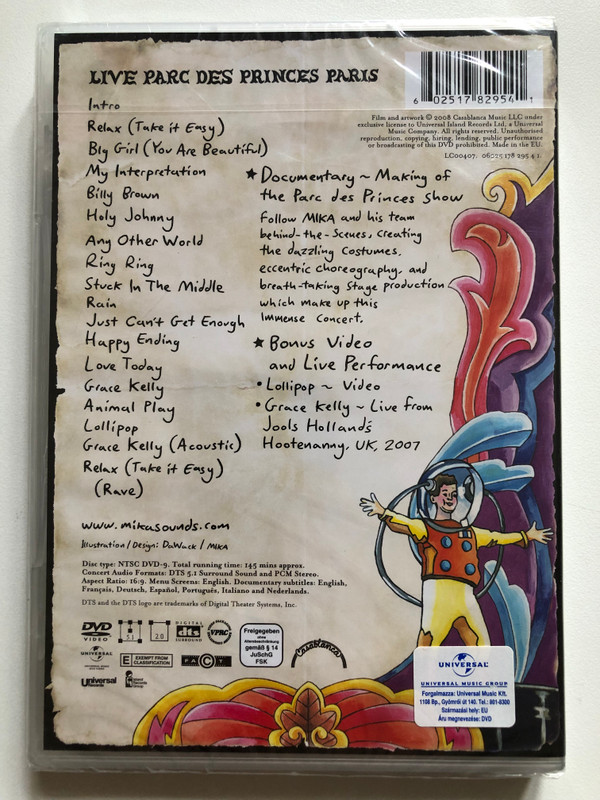 LIVE PARC DES PRINCES PARIS
Intro
Relax (Take it Easy)
Big Girl (You Are Beautiful)
My Interpretation
Billy Brown
Holy Johnny
Any Other World
Ring Ring
Stuck In The Middle
Rain
Just Can't Get Enough
Happy Ending
Love Today
Grace Kelly
Animal Play
Lollipop
Grace Kelly (Acoustic)
Relax (Take it Easy)
(Rave)
6 02517 82954 1
Film and artwork © 2008 Casablanca Music LLC under
exclusive license to Universal Island Records Ltd. a Universal
Music Company. All rights reserved. Unauthorised
reproduction, copying, hiring, lending, public performance
or broadcasting of this DVD prohibited. Made in the EU.
LC00407. 06025 178 295 4 1.
★ Documentary ~ Making of
the Parc des Princes Show
Follow MIKA and his team
behind-the-scenes, creating
the dazzling costumes,
eccentric choreography, and
breath-taking stage production
which make up this
Immense Concert.
★ Bonus Video
and Live Performance
• Lollipop ~ Video
• Grace Kelly ~ Live from
Jools Holland's
Hootenanny, UK, 2007
www.mikasounds.com
Illustration/Design: DaWack / MIKA
Disc type: NTSC DVD-9. Total running time: 145 mins approx.
Concert Audio Formats: DTS 5.1 Surround Sound and PCM Stereo.
Aspect Ratio: 16:9. Menu Screens: English. Documentary subtitles: English,
Français, Deutsch, Español, Português, Italiano and Nederlands.
DTS and the DTS logo are trademarks of Digital Theater Systems, Inc.
DVD VIDEO
5.1
2.0
DIGITAL dts SURROUND
VPRC
Freigegeben
ohne
Altersbeschränkung
gemäß § 14
JuSchG
FSK
Casablanca
UNIVERSAL
E EXEMPT FROM CLASSIFICATION
FACT
Universal Records
Island Records Group
UNIVERSAL
UNIVERSAL MUSIC GROUP
Forgalmazza: Universal Music Kft.
1106 Bp., Gyömrői út 140. Tel.: 801-8300
Származási hely: EU
Áru megnevezése: DVD